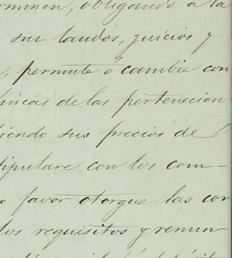 rminen, obligando a la
sus laudos, juicios y
permute ó cambie con
fincas de las pertenecien
iendo sus precios de
tipulare con los com-
o favor otorgue las cor
los requisitos y renun-